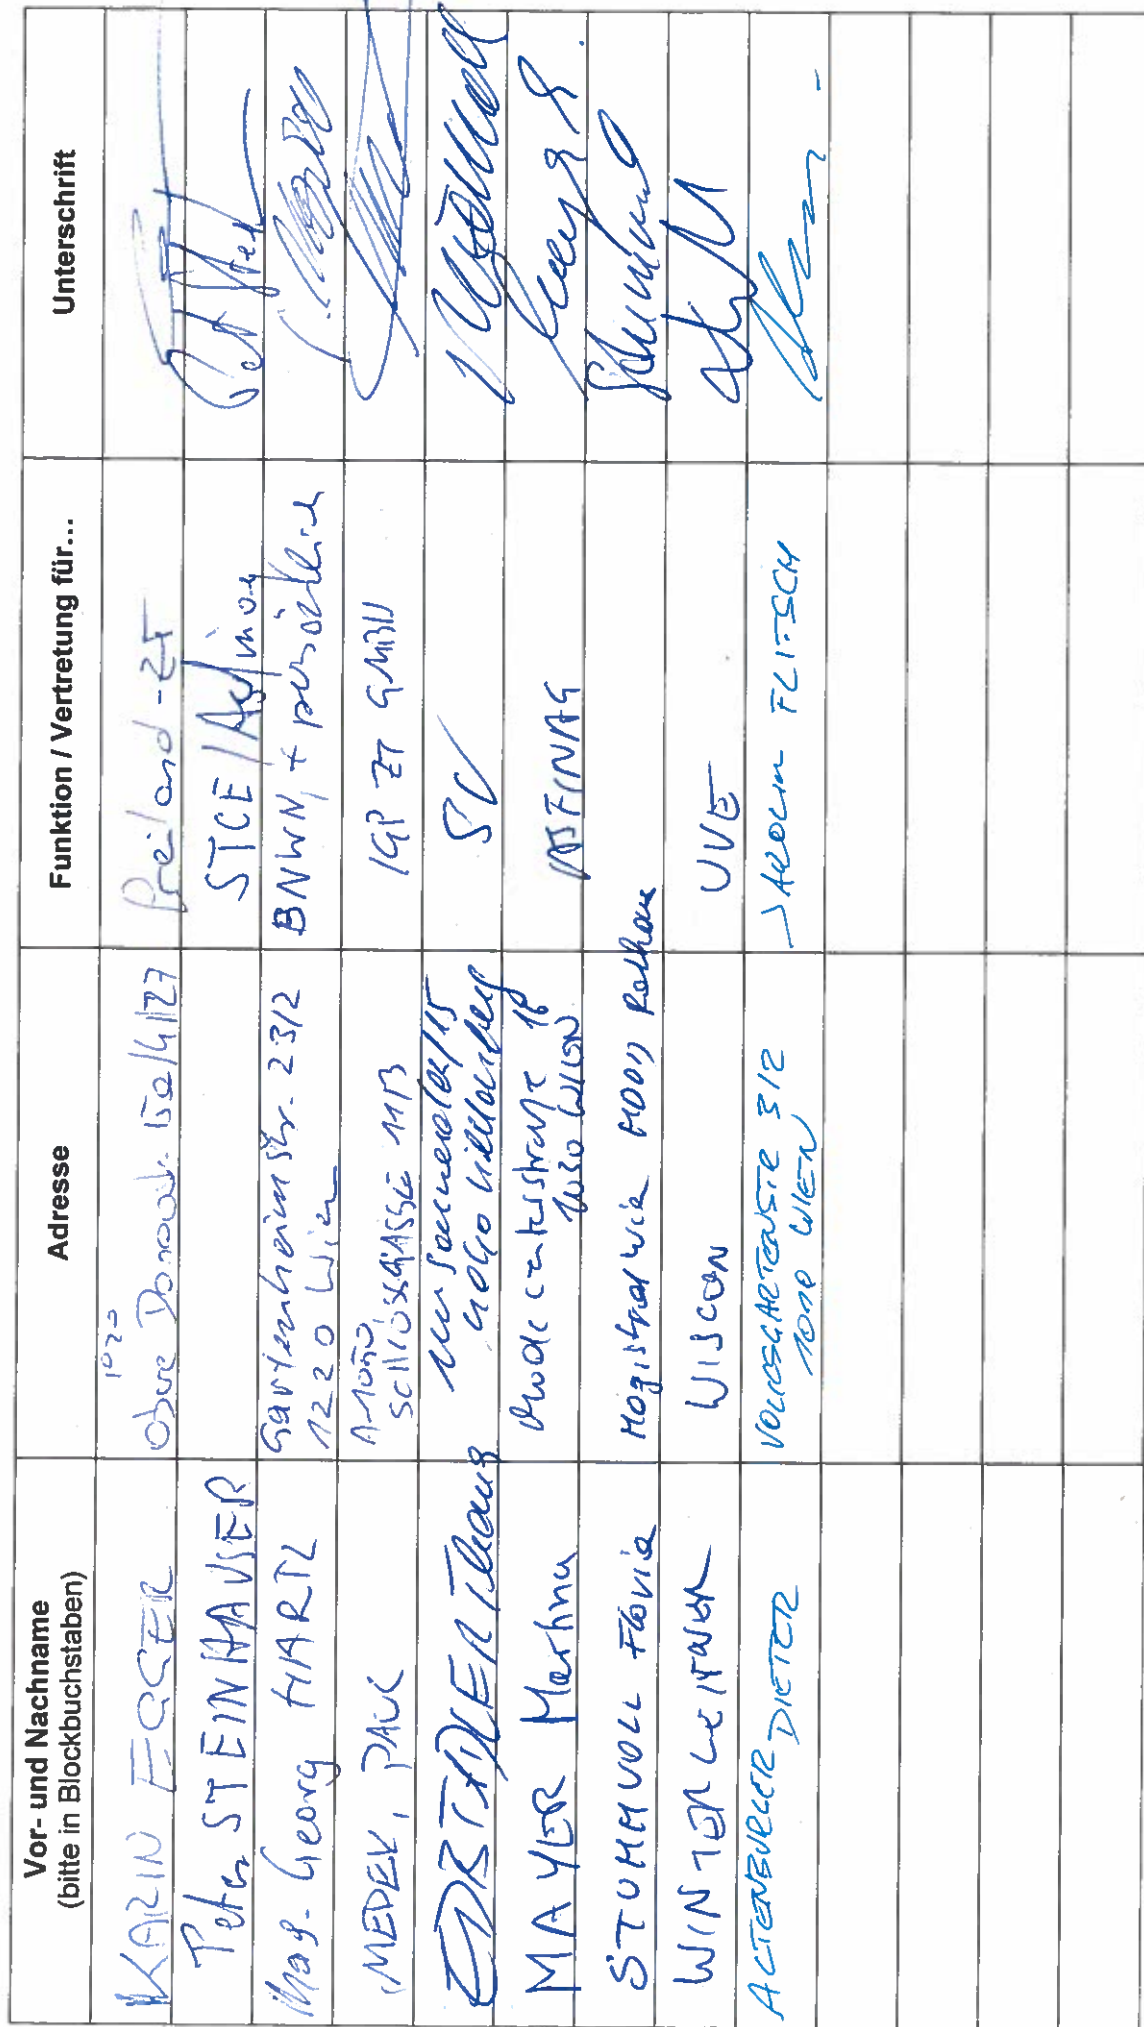 Vor- und Nachname
(bitte in Blockbuchstaben)
Adresse
Funktion / Vertretung für...
Unterschrift
KARIN EGGER
1020
Obere Donaustr.
freiland-ZT
Peter STEINHAUSER
STCE / Asfinag
Mag. Georg HARTL
Gartenheimstr. 23/2
1220 Wien
BNWN, + persönlich
MEDEK, PAUL
A-1050,
SCHLOSSGASSE 11/3
IGP ZT GMBH
Thomas
SV
MAYER Martina
Modecenterstraße 16
1030 WIEN
ASFINAG
STUMMVOLL Florian
Magistrat Wien Rathaus
WINTERLEITNER
WISCON
UVE
ALTENBURGER DIETER
VOLKSGARTENSTR 3/2
1010 WIEN
JAROLIM FLITSCH